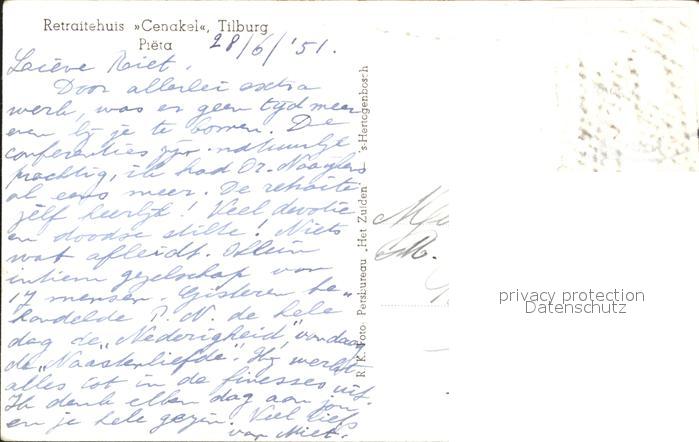 Retraitehuis »Cenakel«, Tilburg
Piëta
28/6/'51.
Lieve Riet.
Door allerlei extra
werk, was er geen tyd meer
even by je te komen. De
conferenties zyn natuurlyk
prachtig, ik had Dr.
al eens meer. De retraite
zelf heerlyk! Veel devotie
en doodse stilte! Niets
wat afleidt. Klein
intiem gezelschap van
17 mensen. Gisteren be-
handelde P. N. de hele
dag de "Nederigheid", vandaag
de "Naastenliefde". Hy werkt
alles tot in de finesses uit.
Ik denk elken dag aan jou
en je hele gezin. Veel liefs
van Miet.
R. K. Foto- Persbureau „Het Zuiden" - 's-Hertogenbosch
M.
privacy protection
Datenschutz